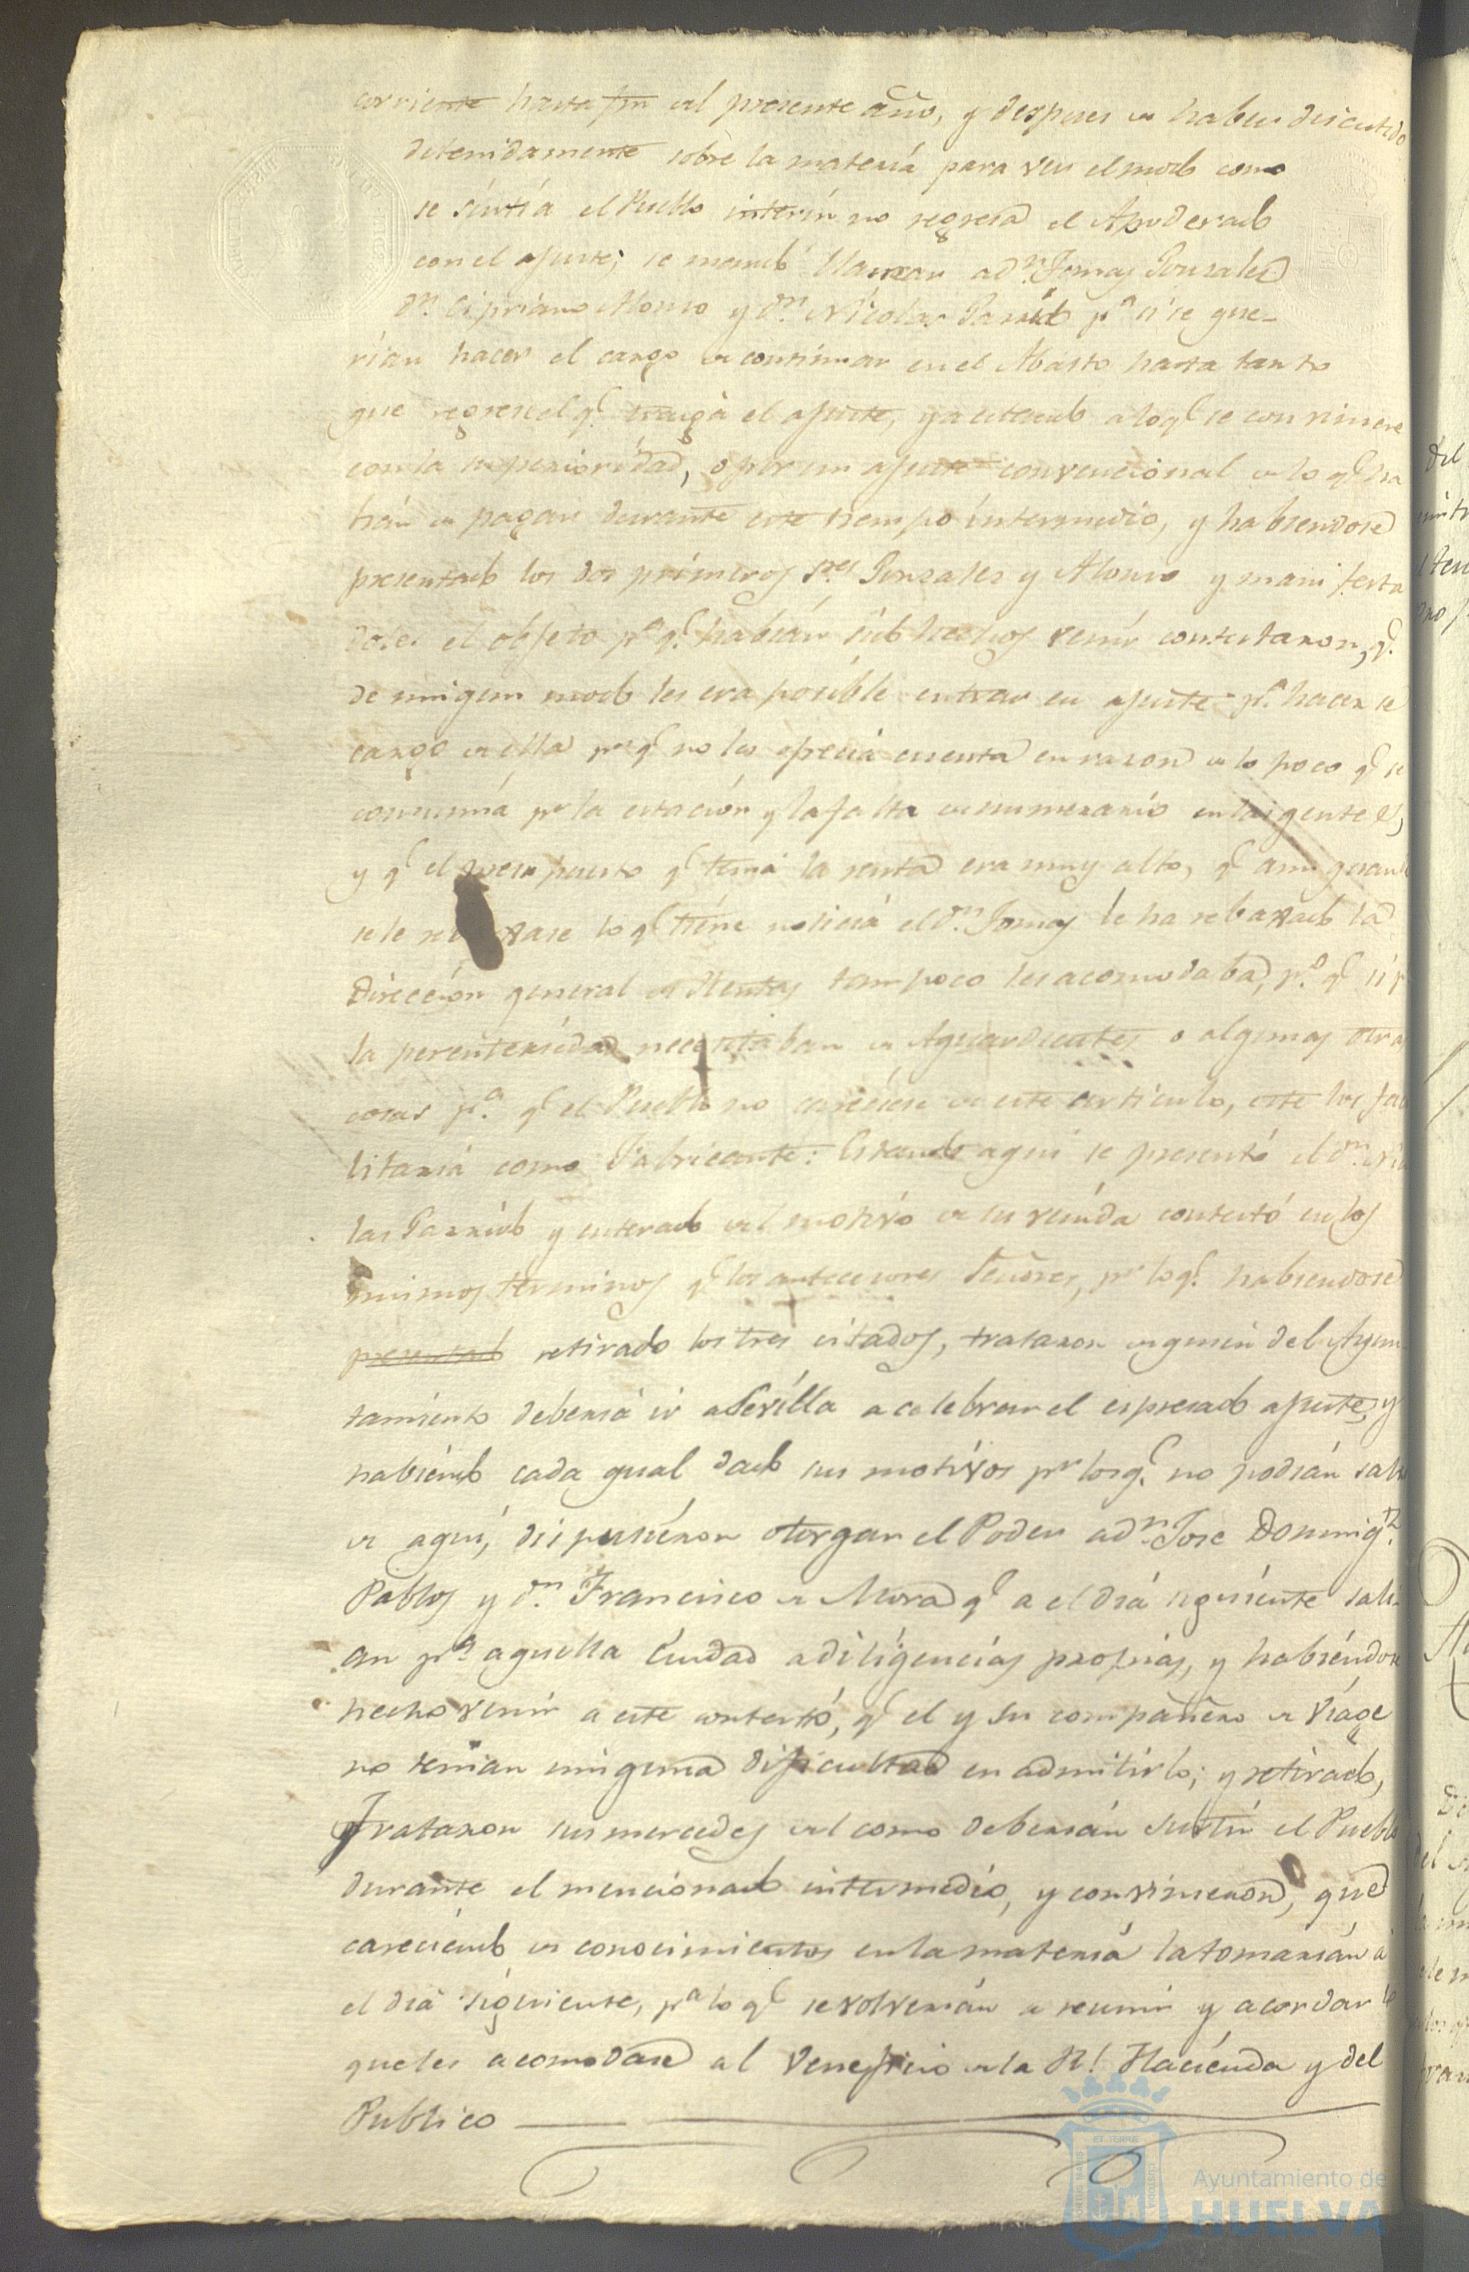 corriente hasta fin del presente año, y despues de haber discutido
detenidamente sobre la materia para ver el modo como
se surtia el Pueblo interin no regresa el Apoderado
con el ajuste; se mandó llamar a Dn. Tomas Gonzales
Dn. Cipriano Alonso y Dn. Nicolas Garrido pa. si se que-
rian hacer el cargo de continuar en el Abasto hasta tanto
que regrese el q.e traiga el ajuste, ya estando a lo q.e se conviniere
con la superioridad, o por un ajuste convencional de lo q.e ha
brán de pagar durante este tiempo intermedio, y habiendose
presentado los dos primeros Sres. Gonzales y Alonso y manifesta
doles el objeto pa. q.e habian sido hechos venir contestaron, q.e
de ningun modo les era posible entrar en ajuste pa. hacerse
cargo de ella pr. q.e no les ofrecia cuenta en razon de lo poco q.e se
consumia pr. la estación y la falta de numerario en las gentes,
y q.e el presupuesto q.e tenia la renta era muy alto, q.e aun quando
se le rebaxase lo q.e tiene noticia el Dn. Tomas le ha rebaxado la
Dirección general de Rentas tampoco les acomodaba, po. q.e si p
la perentoriedad necesitaban de Aguardientes o algunas otras
cosas pa. q.e el Pueblo no careciese de este articulo, este los faci
litaria como Fabricante: Estando aqui se presentó el Dn. Nico
las Garrido y enterado del motivo de su venida contestó en los
mismos terminos q.e los antecesores Señores, pr. lo q.e habiendose
presentado retirado los tres citados, trataron de quien del Ayun
tamiento deberia ir a Sevilla a celebrar el espresado ajuste, y
habiendo cada qual dado sus motivos pr. los q.e no podian salir
de aqui, dispusieron otorgar el Poder a Dn. Jose Doming.z
Pablos y Dn. Francisco de Mora q.e a el dia siguiente sali-
an pa. aquella Ciudad a diligencias propias, y habiendose
hecho venir a este contestó, q.e el y su compañero de viage
no tenian ninguna dificultad en admitirlo; y retirado,
Trataron sus mercedes del como deberian surtir el Pueblo
durante el mencionado intermedio, y convinieron, que
careciendo de conocimientos en la materia la tomarian a
el dia siguiente, pa. lo q.e se volverian a reunir y acordar lo
que les acomodase al veneficio de la Rl. Hacienda y del
Publico
Ayuntamiento de
HUELVA